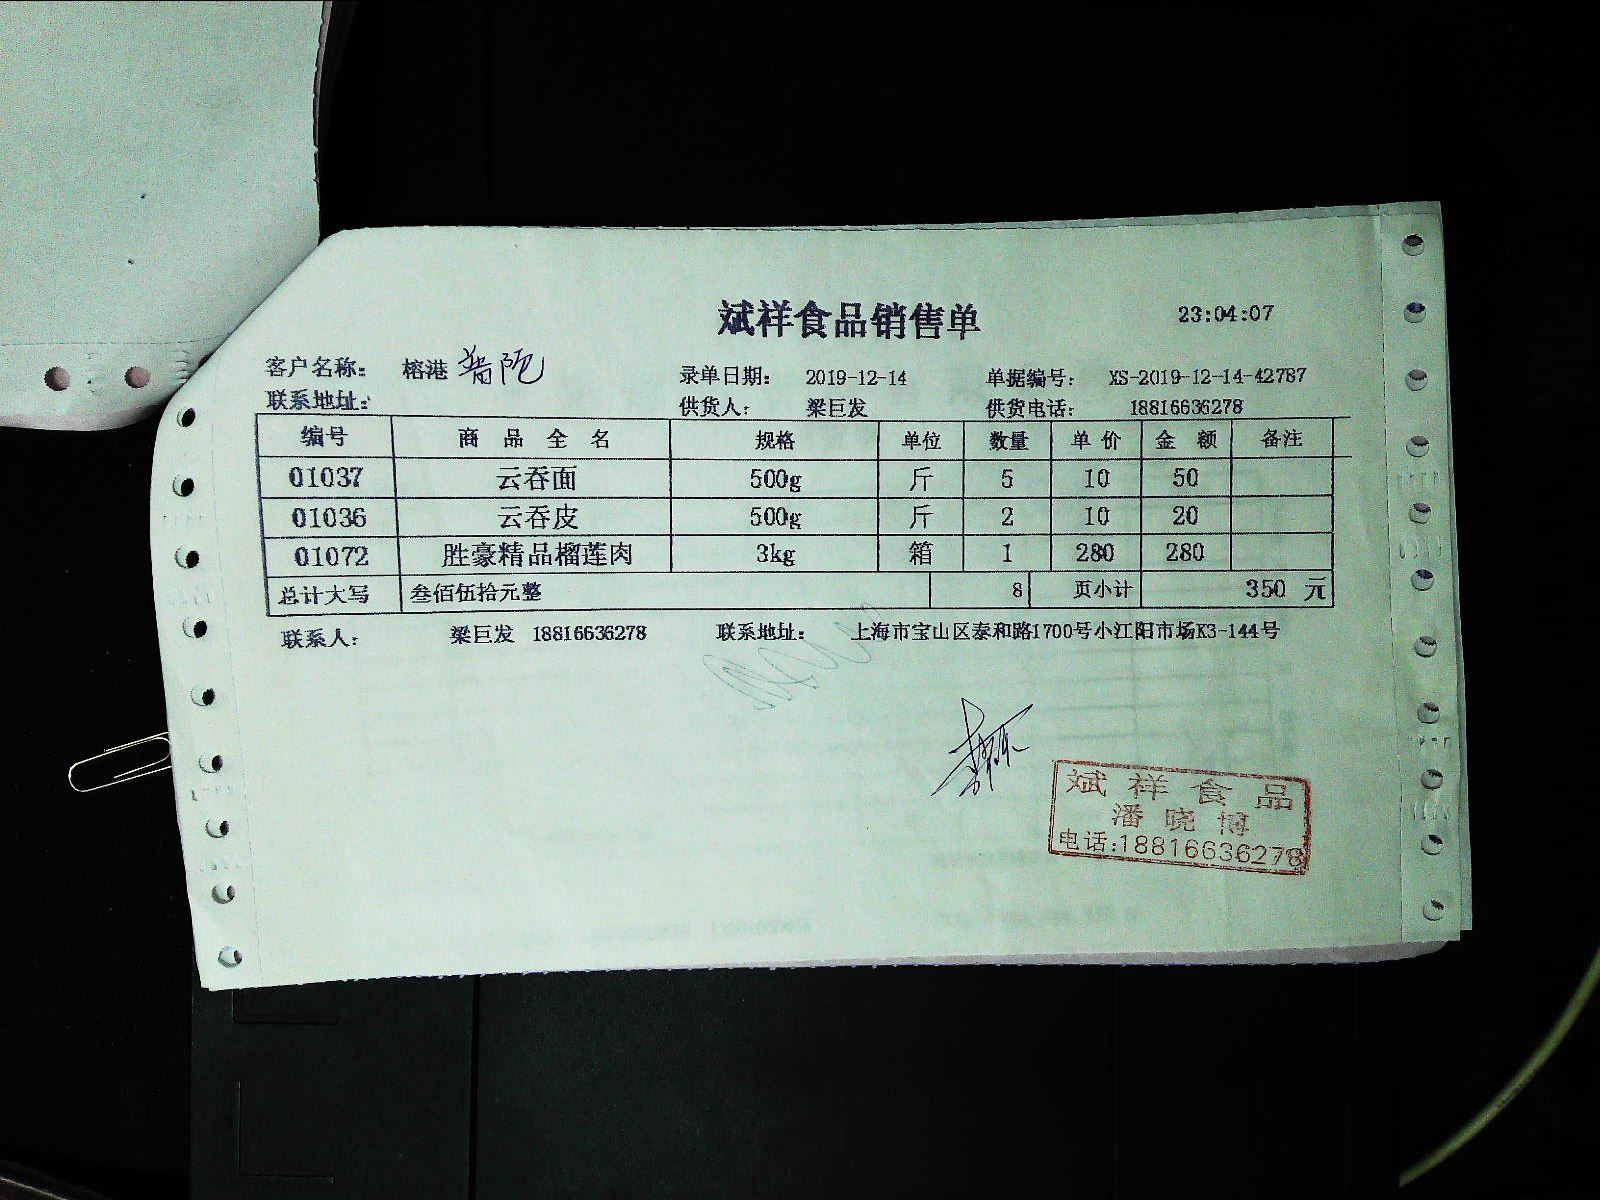 斌祥食品销售单 23:04:07
客户名称: 榕港 普陀 录单日期: 2019-12-14 单据编号: XS-2019-12-14-42787
联系地址: 供货人: 梁巨发 供货电话: 18816636278
编号 商品全名 规格 单位 数量 单价 金额 备注
01037 云吞面 500g 斤 5 10 50
01036 云吞皮 500g 斤 2 10 20
01072 胜豪精品榴莲肉 3kg 箱 1 280 280
总计大写 叁佰伍拾元整 8 页小计 350 元
联系人: 梁巨发 18816636278 联系地址: 上海市宝山区泰和路1700号小江阳市场K3-144号
斌祥食品
潘晓博
电话:18816636278